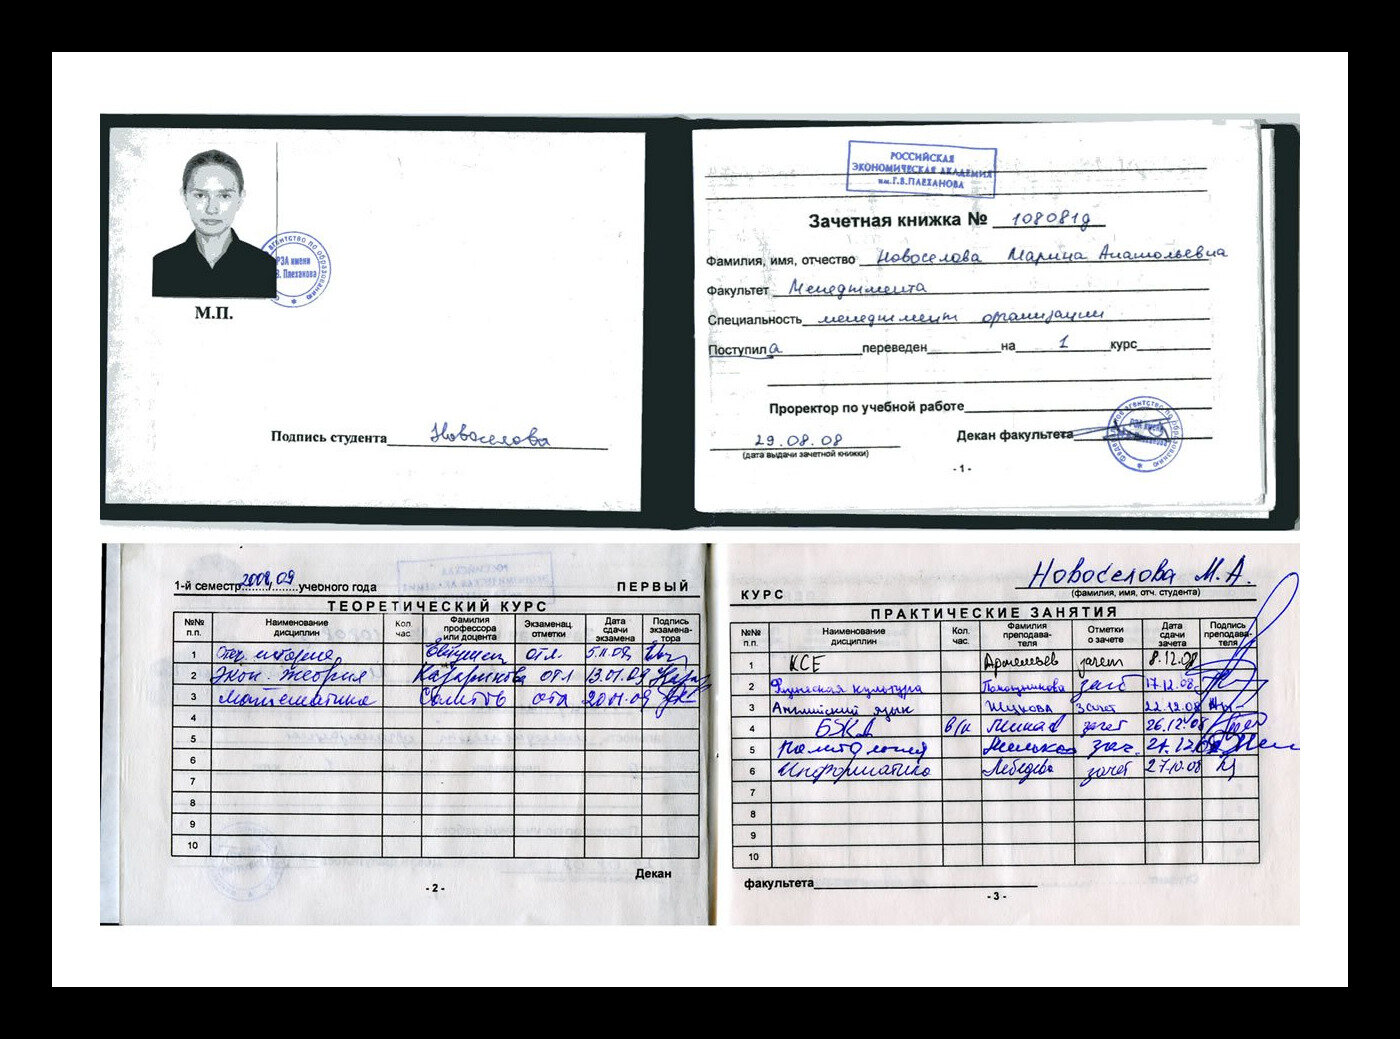 РЭА имени
Г.В. Плеханова
М.П.
Подпись студента Новоселова
РОССИЙСКАЯ
ЭКОНОМИЧЕСКАЯ АКАДЕМИЯ
им. Г.В.ПЛЕХАНОВА
Зачетная книжка № 108081д
Фамилия, имя, отчество Новоселова Марина Анатольевна
Факультет Менеджмента
Специальность менеджмент организации
Поступила переведен на 1 курс
Проректор по учебной работе
29.08.08 Декан факультета
(дата выдачи зачетной книжки)
- 1 -
1-й семестр 2008/09 учебного года ПЕРВЫЙ
ТЕОРЕТИЧЕСКИЙ КУРС
№№ п.п. Наименование дисциплин Кол. час. Фамилия профессора или доцента Экзаменац. отметки Дата сдачи экзамена Подпись экзаменатора
1 Отеч. история отл.
2 Экон. теория Казаринова отл 13.01.09
3 Математика отл 20.01.09
4
5
6
7
8
9
10
Декан
- 2 -
Новоселова М.А.
КУРС (фамилия, имя, отч. студента)
ПРАКТИЧЕСКИЕ ЗАНЯТИЯ
№№ п.п. Наименование дисциплин Кол. час. Фамилия преподавателя Отметки о зачете Дата сдачи зачета Подпись преподавателя
1 КСЕ Артемьев зачет 8.12.08
2 Физическая культура зачет 17.12.08
3 Английский язык Шукова Зачет 22.12.08
4 БЖД зачет 26.12.08
5 Политология зач.
6 Информатика Лебедева зачет 27.10.08
7
8
9
10
факультета
- 3 -